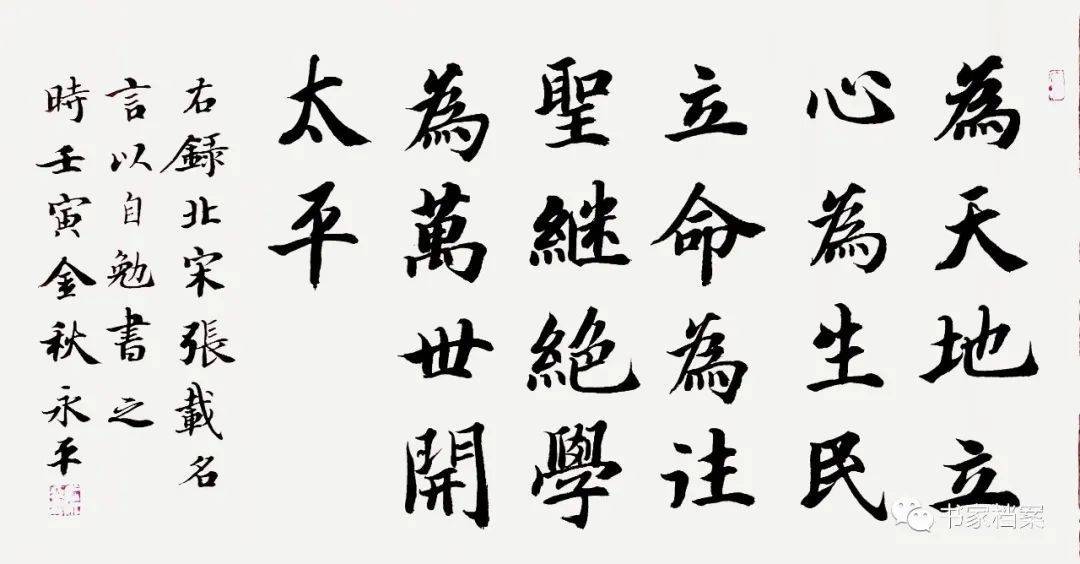 為天地立
心為生民
立命為往
聖継絶學
為萬世開
太平
右録北宋張載名
言以自勉書之
時壬寅金秋永平
书家档案